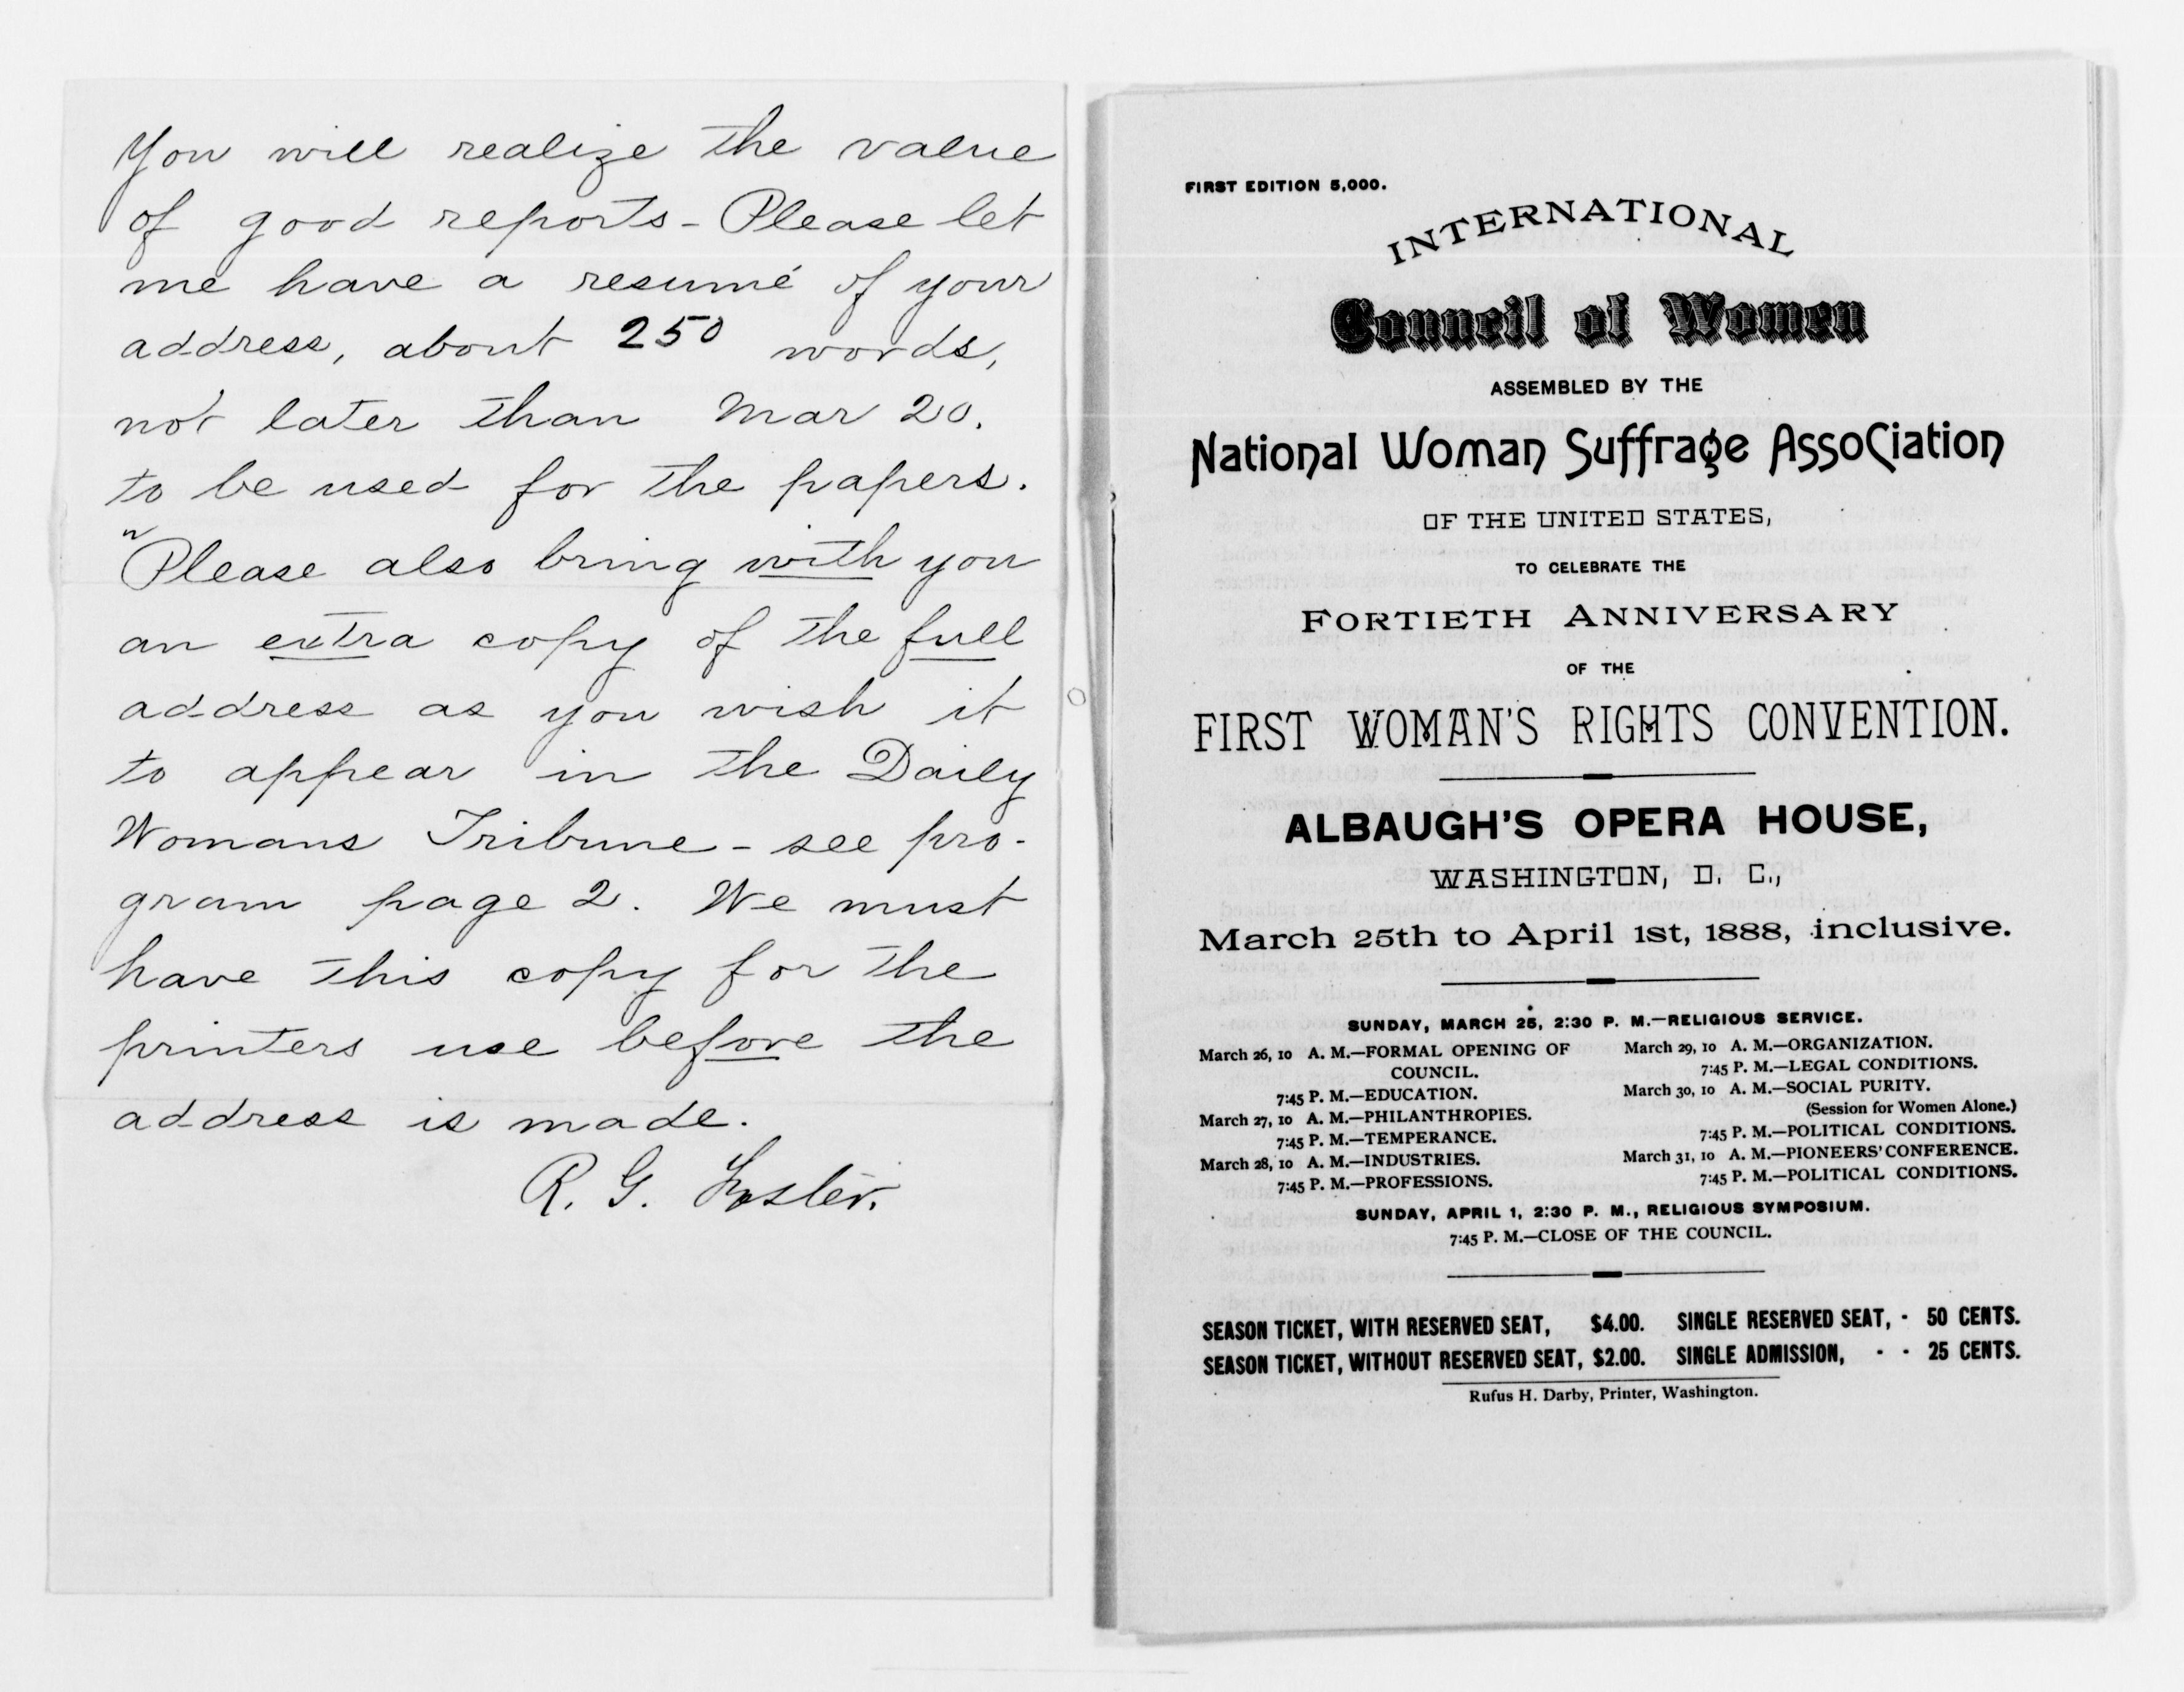 You will realize the value
of good reports - Please let
me have a resumé of your
address, about 250 words,
not later than Mar 20.
to be used for the papers.
"Please also bring with you
an extra copy of the full
address as you wish it
to appear in the Daily
Womans Tribune - see pro-
gram page 2. We must
have this copy for the
printers use before the
address is made.
R. G. Foster.
FIRST EDITION 5,000.
INTERNATIONAL
Council of Women
ASSEMBLED BY THE
National Woman Suffrage Association
OF THE UNITED STATES,
TO CELEBRATE THE
FORTIETH ANNIVERSARY
OF THE
FIRST WOMAN'S RIGHTS CONVENTION.
ALBAUGH'S OPERA HOUSE,
WASHINGTON, D. C.,
March 25th to April 1st, 1888, inclusive.
SUNDAY, MARCH 25, 2:30 P. M.—RELIGIOUS SERVICE.
March 26, 10 A. M.—FORMAL OPENING OF
COUNCIL.
7:45 P. M.—EDUCATION.
March 27, 10 A. M.—PHILANTHROPIES.
7:45 P. M.—TEMPERANCE.
March 28, 10 A. M.—INDUSTRIES.
7:45 P. M.—PROFESSIONS.
March 29, 10 A. M.—ORGANIZATION.
7:45 P. M.—LEGAL CONDITIONS.
March 30, 10 A. M.—SOCIAL PURITY.
(Session for Women Alone.)
7:45 P. M.—POLITICAL CONDITIONS.
March 31, 10 A. M.—PIONEERS' CONFERENCE.
7:45 P. M.—POLITICAL CONDITIONS.
SUNDAY, APRIL 1, 2:30 P. M., RELIGIOUS SYMPOSIUM.
7:45 P. M.—CLOSE OF THE COUNCIL.
SEASON TICKET, WITH RESERVED SEAT, $4.00. SINGLE RESERVED SEAT, - 50 CENTS.
SEASON TICKET, WITHOUT RESERVED SEAT, $2.00. SINGLE ADMISSION, - - 25 CENTS.
Rufus H. Darby, Printer, Washington.